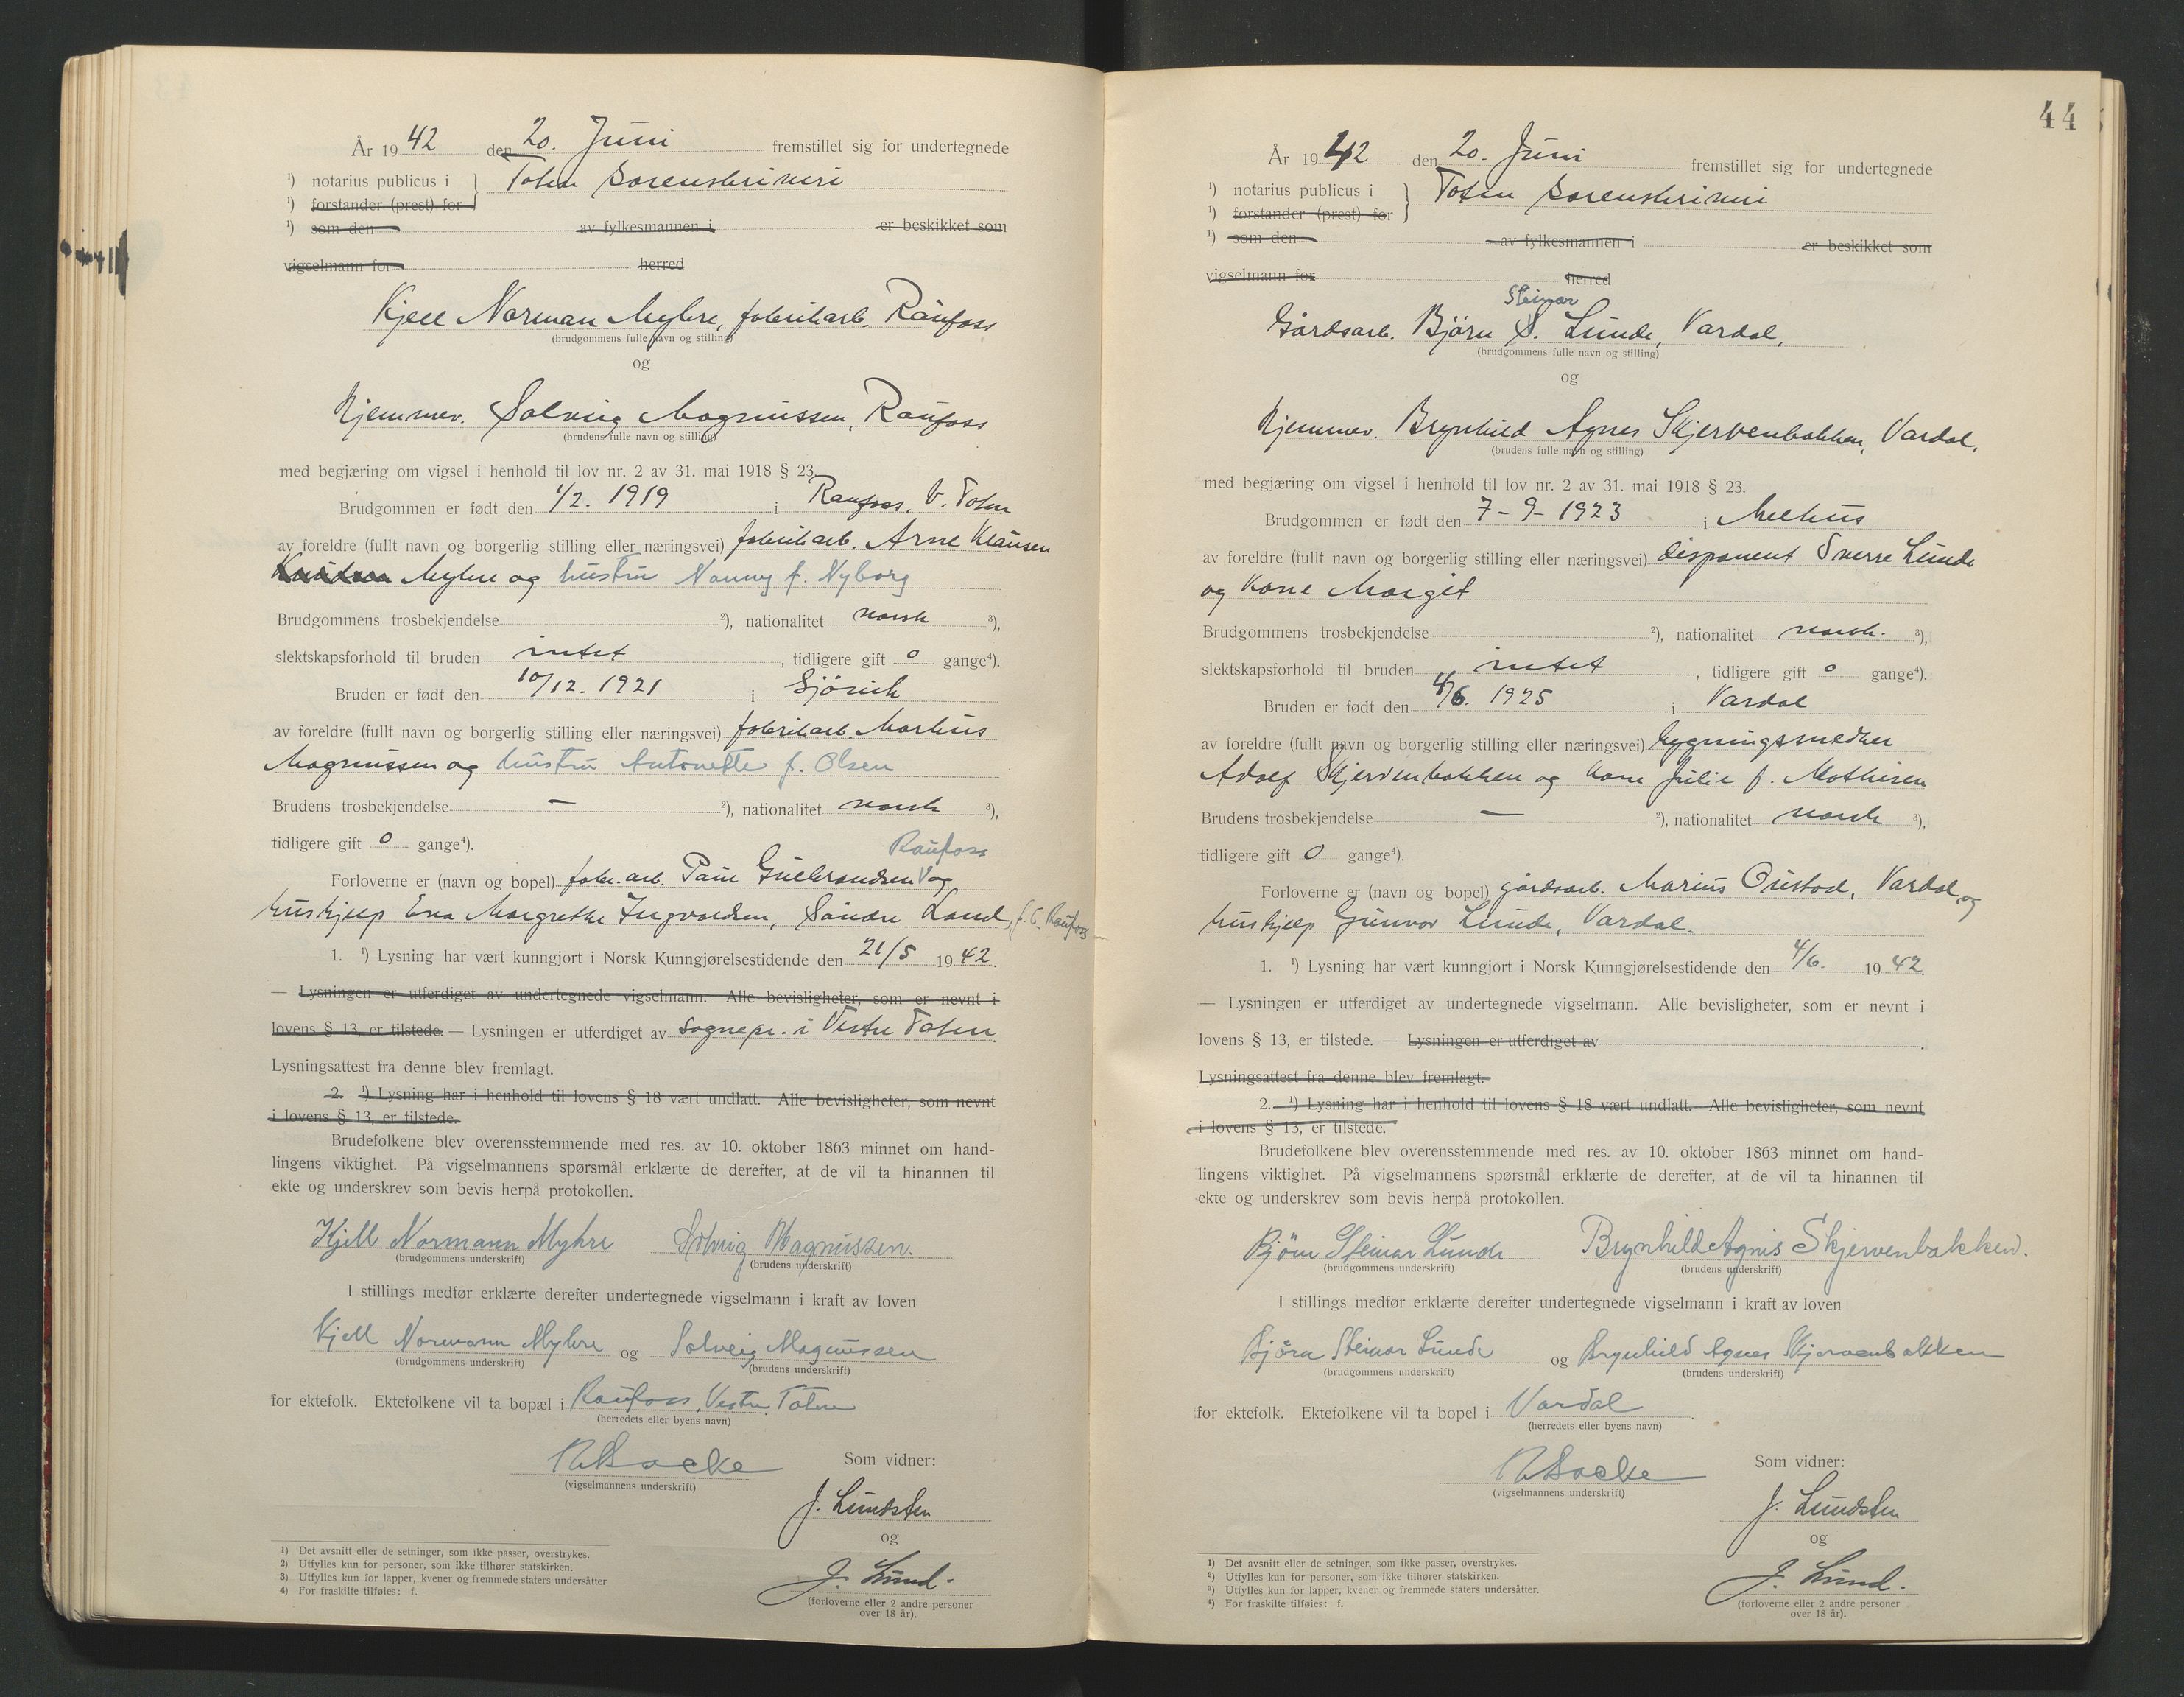 År 19 42 den 20. Juni fremstillet sig for undertegnede
¹) notarius publicus i } Toten Sorenskriveri
¹) forstander (prest) for
¹) som den av fylkesmannen i er beskikket som
vigselmann for herred
Kjell Norman Myhre, fabrikarb. Raufoss
(brudgommens fulle navn og stilling)
og
Hjemmev. Solveig Magnussen, Raufoss
(brudens fulle navn og stilling)
med begjæring om vigsel i henhold til lov nr. 2 av 31. mai 1918 § 23.
Brudgommen er født den 1/2. 1919 i Raufoss, V. Toten
av foreldre (fullt navn og borgerlig stilling eller næringsvei) fabrikarb. Arne Klausen
Knudsen Myhre og hustru Nanny f. Nyborg
Brudgommens trosbekjendelse ²), nationalitet norsk ³),
slektskapsforhold til bruden intet , tidligere gift 0 gange⁴).
Bruden er født den 10/12. 1921 i Gjövik
av foreldre (fullt navn og borgerlig stilling eller næringsvei) fabrikarb. Markus
Magnussen og hustru Antonette f. Olsen
Brudens trosbekjendelse — ²), nationalitet norsk ³),
tidligere gift 0 gange⁴).
Raufoss
Forloverne er (navn og bopel) fabr. arb. Paul Gulbrandsen V og
hushjelp Eva Margrethe Ingvaldsen, Söndre Land, f. t. Raufoss
1. ¹) Lysning har vært kunngjort i Norsk Kunngjørelsestidende den 21/5 19 42.
— Lysningen er utferdiget av undertegnede vigselmann. Alle bevisligheter, som er nevnt i
lovens § 13, er tilstede. — Lysningen er utferdiget av sognepr. i Vestre Toten.
Lysningsattest fra denne blev fremlagt.
2. ¹) Lysning har i henhold til lovens § 18 vært undlatt. Alle bevisligheter, som nevnt
i lovens § 13, er tilstede.
Brudefolkene blev overensstemmende med res. av 10. oktober 1863 minnet om hand-
lingens viktighet. På vigselmannens spørsmål erklærte de derefter, at de vil ta hinannen til
ekte og underskrev som bevis herpå protokollen.
Kjell Normann Myhre Solveig Magnussen.
(brudgommens underskrift) (brudens underskrift)
I stillings medfør erklærte derefter undertegnede vigselmann i kraft av loven
Kjell Normann Myhre og Solveig Magnussen
(brudgommens underskrift) (brudens underskrift)
for ektefolk. Ektefolkene vil ta bopæl i Raufoss, Vestre Toten
(herredets eller byens navn)
(vigselmannens underskrift)
Som vidner:
J. Lundsten
og
J. Lund.
(forloverne eller 2 andre personer
over 18 år).
1) Det avsnitt eller de setninger, som ikke passer, overstrykes.
2) Utfylles kun for personer, som ikke tilhører statskirken.
3) Utfylles kun for lapper, kvener og fremmede staters undersåtter
4) For fraskilte tilføies: f.
44
År 19 42 den 20. Juni fremstillet sig for undertegnede
¹) notarius publicus i } Toten Sorenskriveri
¹) forstander (prest) for
¹) som den av fylkesmannen i er beskikket som
vigselmann for herred
Steinar
Gårdsarb. Björn S. Lunde, Vardal.
(brudgommens fulle navn og stilling)
og
Hjemmev. Brynhild Agnes Skjervenbakken, Vardal.
(brudens fulle navn og stilling)
med begjæring om vigsel i henhold til lov nr. 2 av 31. mai 1918 § 23.
Brudgommen er født den 7-9-1923 i Melhus
av foreldre (fullt navn og borgerlig stilling eller næringsvei) disponent Sverre Lunde
og kone Margit
Brudgommens trosbekjendelse ²), nationalitet norsk. ³),
slektskapsforhold til bruden intet , tidligere gift 0 gange⁴).
Bruden er født den 4/6. 1925 i Vardal
av foreldre (fullt navn og borgerlig stilling eller næringsvei) bygningssnedker
Adolf Skjervenbakken og kone Julie f. Mathisen
Brudens trosbekjendelse — ²), nationalitet norsk ³),
tidligere gift 0 gange⁴).
Forloverne er (navn og bopel) gårdsarb. Marius Oustad, Vardal, og
hushjelp Gunvor Lunde, Vardal.
1. ¹) Lysning har vært kunngjort i Norsk Kunngjørelsestidende den 4/6. 19 42.
— Lysningen er utferdiget av undertegnede vigselmann. Alle bevisligheter, som er nevnt i
lovens § 13, er tilstede. — Lysningen er utferdiget av .
Lysningsattest fra denne blev fremlagt.
2. ¹) Lysning har i henhold til lovens § 18 vært undlatt. Alle bevisligheter, som nevnt
i lovens § 13, er tilstede.
Brudefolkene blev overensstemmende med res. av 10. oktober 1863 minnet om hand-
lingens viktighet. På vigselmannens spørsmål erklærte de derefter, at de vil ta hinannen til
ekte og underskrev som bevis herpå protokollen.
Bjørn Steinar Lunde Brynhild Agnes Skjervenbakken.
(brudgommens underskrift) (brudens underskrift)
I stillings medfør erklærte derefter undertegnede vigselmann i kraft av loven
Björn Steinar Lunde og Brynhild Agnes Skjervenbakken
(brudgommens underskrift) (brudens underskrift)
for ektefolk. Ektefolkene vil ta bopel i Vardal.
(herredets eller byens navn)
(vigselmannens underskrift)
Som vidner:
J. Lundsten
og
J. Lund.
(forloverne eller 2 andre personer
over 18 år).
1) Det avsnitt eller de setninger, som ikke passer, overstrykes.
2) Utfylles kun for personer, som ikke tilhører statskirken.
3) Utfylles kun for lapper, kvener og fremmede staters undersåtter.
4) For fraskilte tilføies: f.